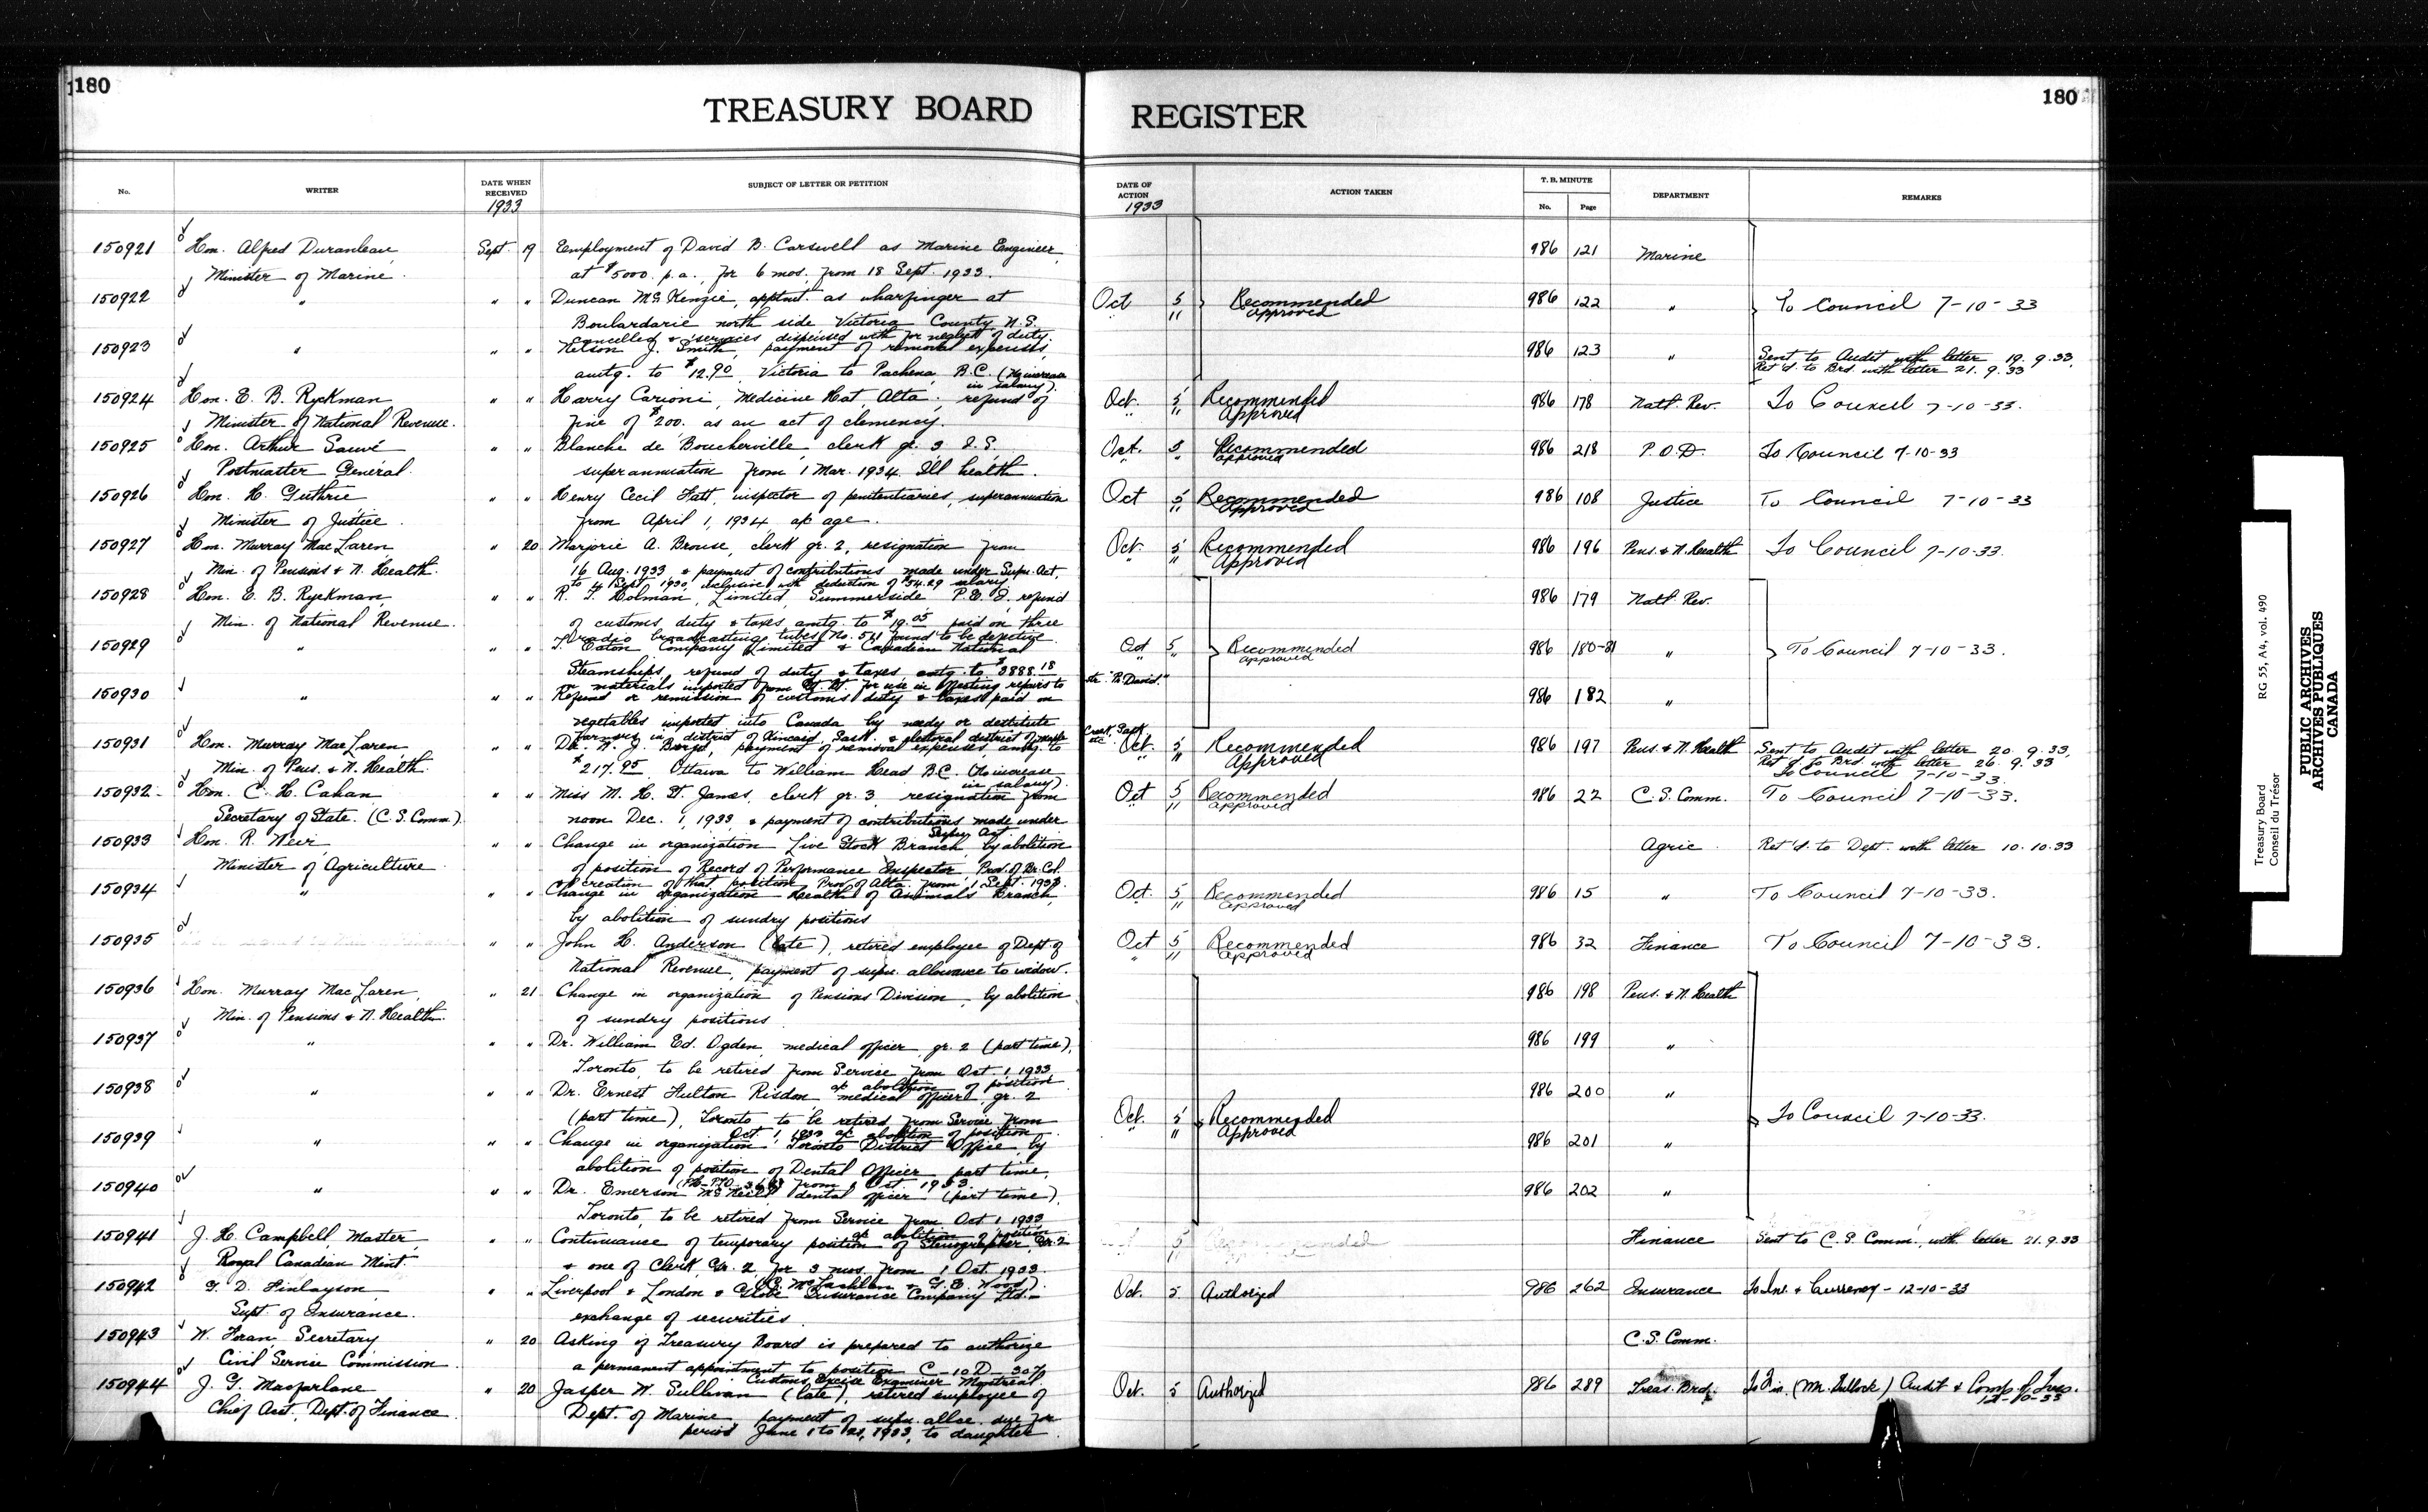 180
TREASURY BOARD
REGISTER
180
No.
WRITER
DATE WHEN RECEIVED
1933
SUBJECT OF LETTER OR PETITION
DATE OF ACTION
1933
ACTION TAKEN
T. B. MINUTE
No.
Page
DEPARTMENT
REMARKS
150921 Hon. Alfred Duranleau, Sept. 19 Employment of David B. Carswell as Marine Engineer, 986 121 Marine
Minister of Marine. at $5000. p.a., for 6 mos. from 18 Sept. 1933.
150922 " " " Duncan McKenzie, apptmt. as wharfinger at Oct 5 Recommended 986 122 " To Council 7-10-33
Boulardarie north side Victoria County N.S. " " approved
cancelled & services dispensed with for neglect of duty.
150923 " " " Nelson J. Smith, payment of removal expenses, 986 123 " Sent to Audit with letter 19.9.33,
amtg. to $12.90 Victoria to Pachena, B.C. (No increase in salary). Ret'd. to Brd. with letter 21.9.33
150924 Hon. E. B. Ryckman " " Harry Carioni, Medicine Hat, Alta., refund of Oct. 5 Recommended 986 178 Natl. Rev. To Council 7-10-33.
Minister of National Revenue. fine of $200. as an act of clemency. " " Approved
150925 Hon. Arthur Sauvé " " Blanche de Boucherville, clerk gr. 3, superannuation from 1 Mar. 1934. Ill health. Oct. 5 Recommended 986 218 P.O.D. To Council 7-10-33
Postmaster General. " " approved
150926 Hon. H. Guthrie " " Henry Cecil Fatt, inspector of penitentiaries, superannuation Oct 5 Recommended 986 108 Justice To Council 7-10-33
Minister of Justice. from April 1, 1934, a/c age. " approved
150927 Hon. Murray MacLaren, " 20 Marjorie A. Brouse, clerk gr. 2, resignation from Oct. 5 Recommended 986 196 Pens. & N. Health To Council 7-10-33.
Min. of Pensions & N. Health. 16 Aug. 1933 & payment of contributions made under Supn. Act, " Approved
to 4 Sept. 1930, inclusive with deduction of $54.29 salary.
150928 Hon. E. B. Ryckman, " " R. T. Holman, Limited, Summerside P.E.I. refund 986 179 Natl. Rev.
Min. of National Revenue. of customs duty & taxes, amtg. to $19.05 paid on three
radio broadcasting tubes No. found to be defective.
150929 " " " T. Eaton Company Limited & Canadian National Oct 5 Recommended 986 180-81 " To Council 7-10-33.
Steamships, refund of duty & taxes, amtg. to $3888.18 " " approved
on materials imported from for use in effecting repairs to str. "Pr. David."
150930 " " " Refund or remission of customs duty & taxes paid on 986 182 "
vegetables imported into Canada by needy or destitute
farmers in district of Kincaid, Sask. & electoral district of Maple Creek, Sask. etc.
150931 Hon. Murray MacLaren " " Dr. payment of removal expenses, amtg. to Oct. 5 Recommended 986 197 Pens. & N. Health Sent to Audit with letter 20.9.33,
Min. of Pens. & N. Health. $217.95 Ottawa to William Head B.C. (No increase in salary). " " Approved Ret'd to Brd. with letter 26.9.33
To Council 7-10-33.
150932 Hon. C. H. Cahan, " " Miss M. H. St. James, clerk gr. 3, resignation from Oct 5 Recommended 986 22 C.S. Comm. To Council 7-10-33.
Secretary of State. (C.S. Comm.) noon Dec. 1, 1933, & payment of contributions made under Supn. Act. " approved
150933 Hon. R. Weir, " " Change in organization Live Stock Branch, by abolition Agric. Ret'd. to Dept. with letter 10.10.33
Minister of Agriculture. of position of Record of Performance Inspector, Prov. of Br. Col.
& creation of that position Prov. of Alta. from 1 Sept. 1933.
150934 " " " Change in organization Health of Animals Branch, Oct. 5 Recommended 986 15 " To Council 7-10-33.
by abolition of sundry positions " approved
150935 " " John H. Anderson (late), retired employee of Dept. of Oct 5 Recommended 986 32 Finance To Council 7-10-33.
National Revenue, payment of supn. allowance to widow. " " approved
150936 Hon. Murray MacLaren, " 21 Change in organization of Pensions Division, by abolition 986 198 Pens. & N. Health
Min. of Pensions & N. Health. of sundry positions.
150937 " " " Dr. William Ed. Ogden, medical officer, gr. 2 (part time), 986 199 "
Toronto, to be retired from Service from Oct. 1 1933 a/c abolition of position
150938 " " " Dr. Ernest Fulton Risdon medical officer, gr. 2 986 200 "
(part time), Toronto to be retired from Service from Oct. 5 Recommended To Council 7-10-33.
Oct. 1, 1933 a/c abolition of position " " Approved
150939 " " " Change in organization Toronto District Office, by 986 201 "
abolition of position of Dental Officer part time,
from 1 Oct. 1933
150940 " " " Dr. Emerson McNeill dental officer (part time), 986 202 "
Toronto, to be retired from Service from Oct 1 1933 a/c abolition of position
150941 J. H. Campbell Master, " " Continuance of temporary position of Stenographer, Gr. 2 Finance Sent to C.S. Comm., with letter 21.9.33
Royal Canadian Mint. & one of Clerk Gr. 2 for 3 mos. from 1 Oct. 1933.
McLachlan & G.E. Wood).
150942 G. D. Finlayson, " " Liverpool & London & Globe Insurance Company Ltd. - Oct. 5 Authorized 986 262 Insurance To Ins. & Currency - 12-10-33
Supt. of Insurance. exchange of securities.
150943 W. Foran, Secretary " 20 Asking if Treasury Board is prepared to authorize C.S. Comm.
Civil Service Commission. a permanent appointment to position C-10 D
Customs Excise Examiner Montreal.
150944 J. G. Macfarlane " 20 Jasper W. Sullivan (late), retired employee of Oct. 5 Authorized 986 289 Treas. Brd. To Fin. (Mr. Bullock) Audit &
Chief Acct., Dept. of Finance. Dept. of Marine, payment of supn. allce. due for 12-10-33
period June 1 to 21, 1933, to daughter.
Treasury Board
Conseil du Trésor
RG 55, A4, vol. 490
PUBLIC ARCHIVES
ARCHIVES PUBLIQUES
CANADA